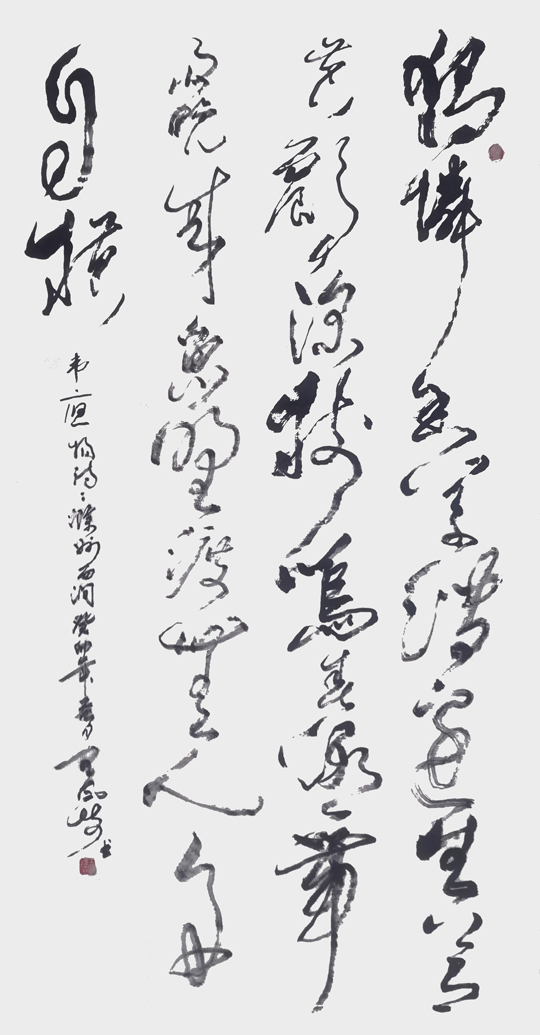 獨憐幽草澗邊生上有
黃鸝深樹鳴春潮帶
雨晚來急野渡無人舟
自橫
韦應物詩滁州西澗癸卯年春月